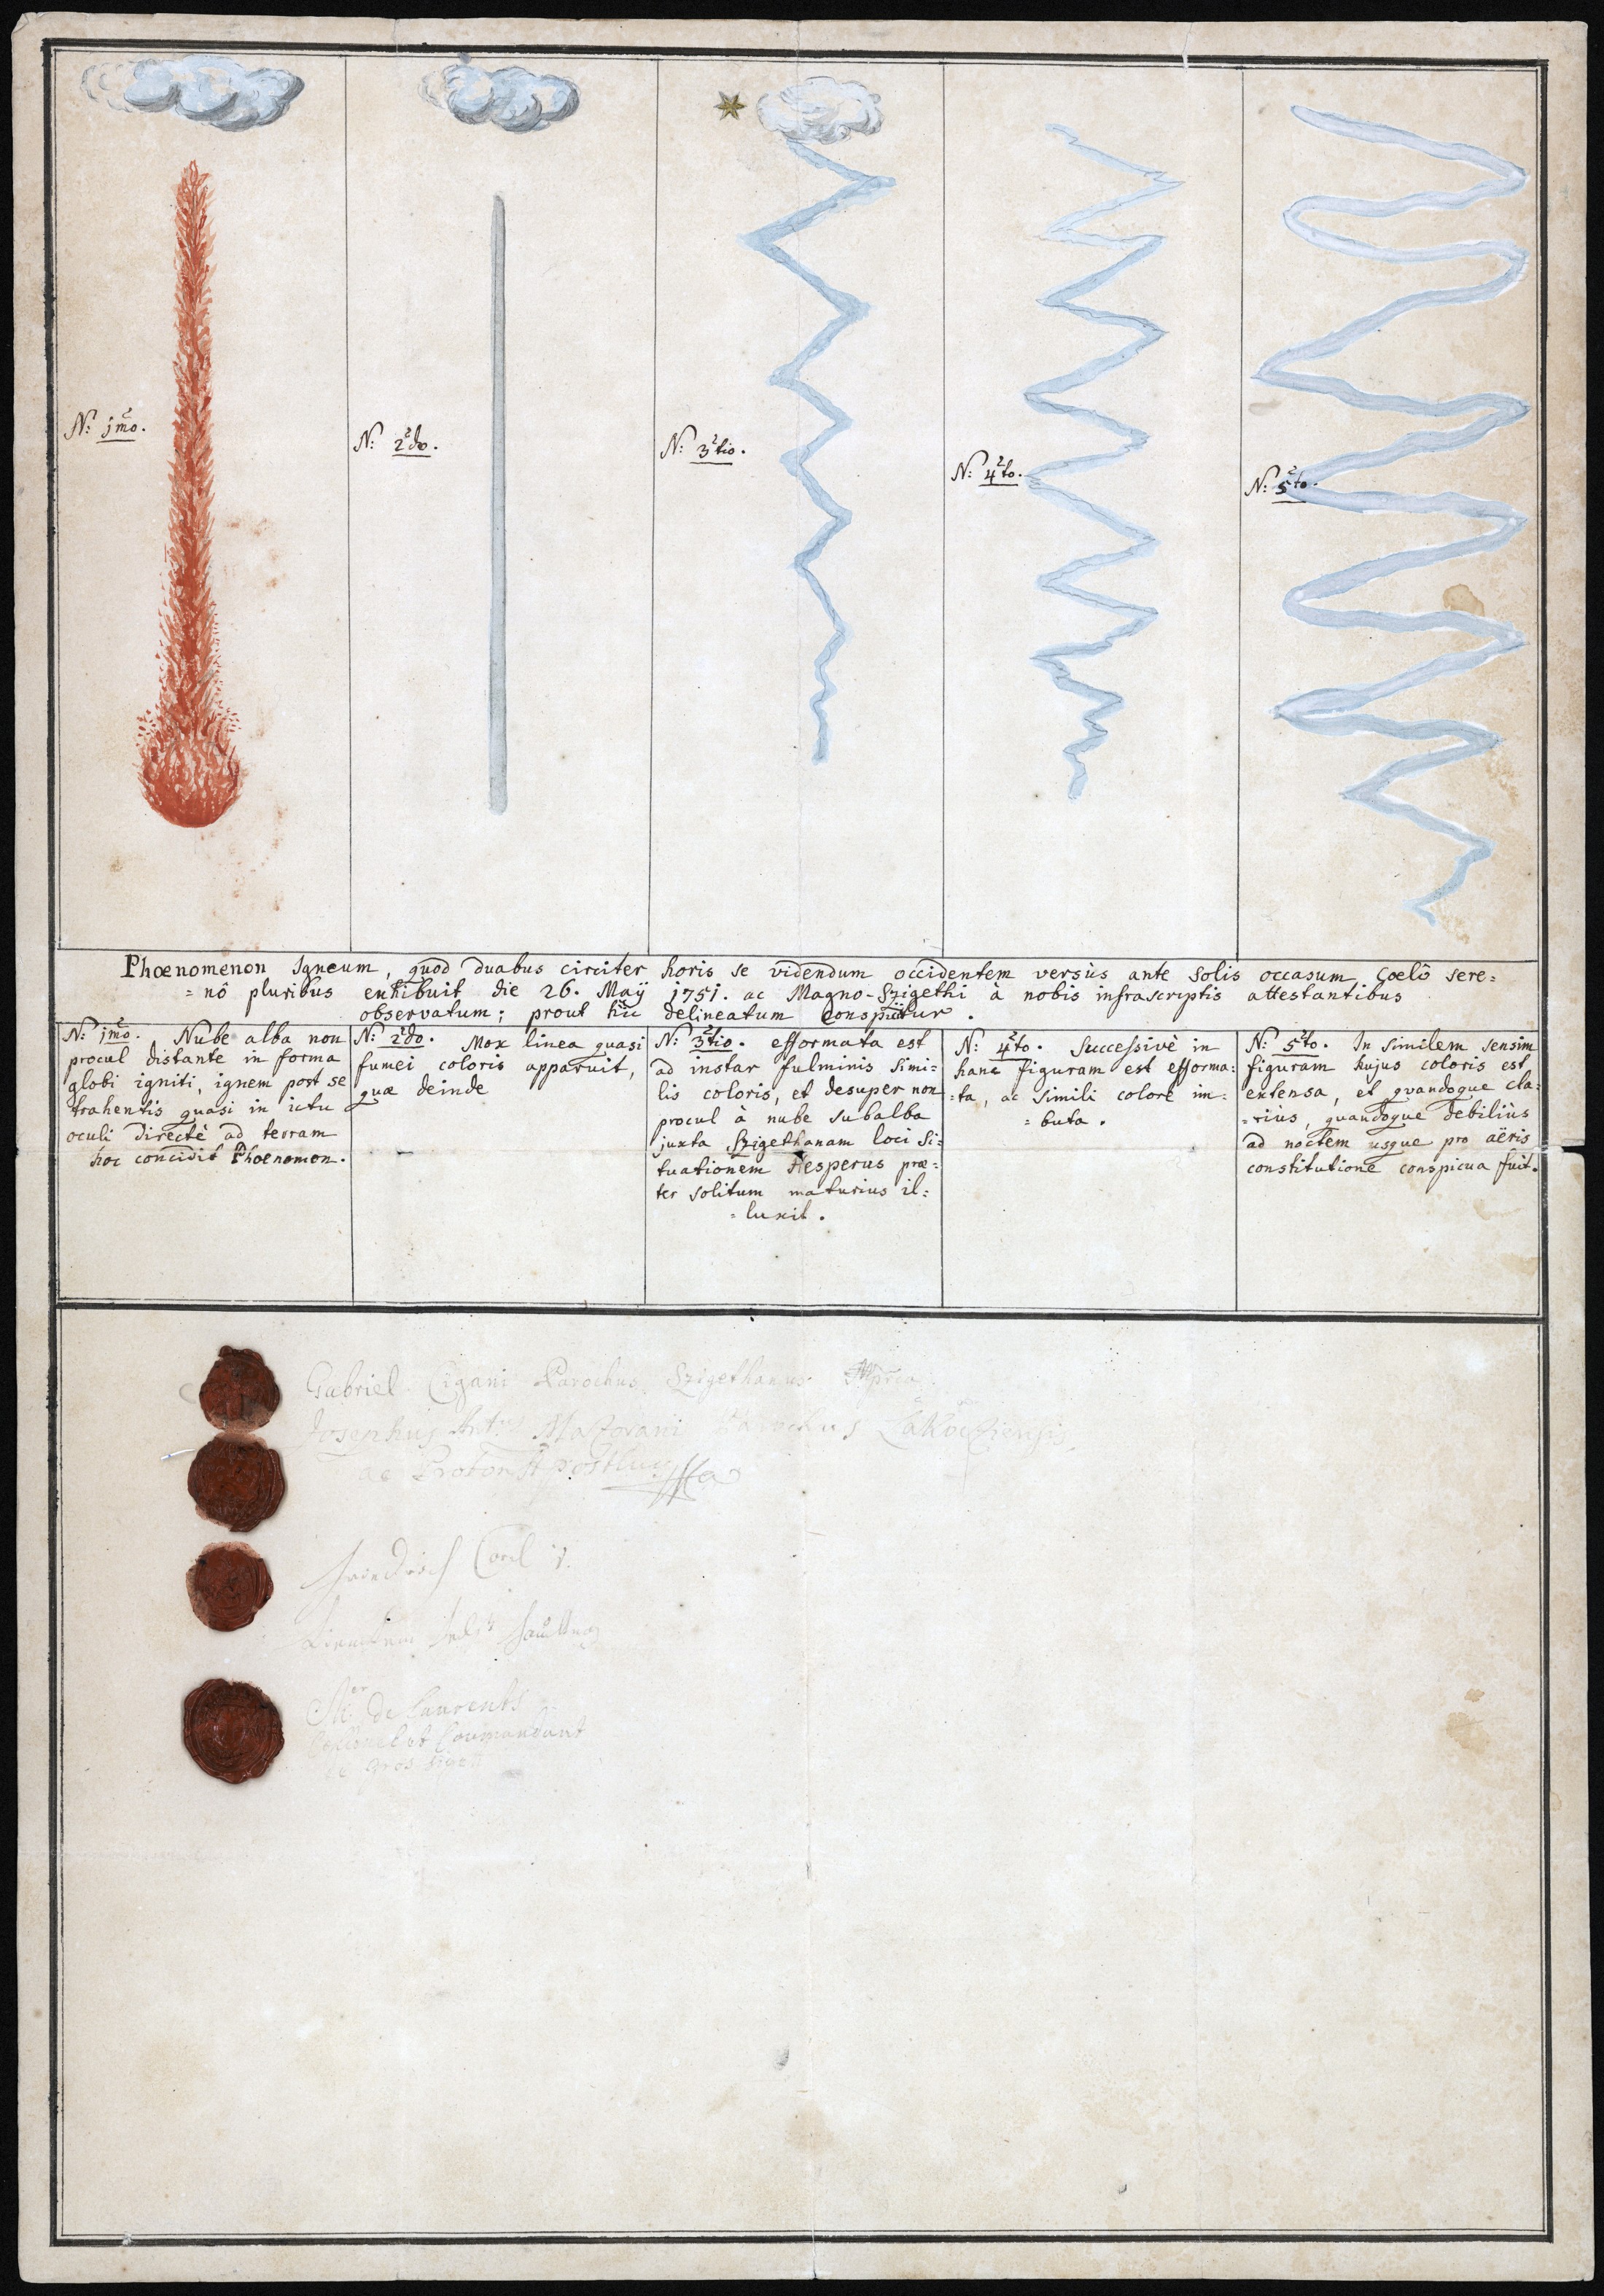 N: 1mo.
N: 2do.
N: 3tio.
N: 4to.
N: 5to.
Phœnomenon Igneum, quod duabus circiter horis se videndum occidentem versùs ante Solis occasum Cœlô sere=
=nô pluribus exhibuit die 26. Maÿ 1751. ac Magno-Szigethi à nobis infrascriptis attestantibus
observatum; prout hic delineatum conspicitur.
N: 1mo. Nube alba non
procul distante in forma
globi igniti, ignem post se
trahentis quasi in ictu
oculi directè ad terram
hoc concidit Phœnomen.
N: 2do. Mox linea quasi
fumei coloris apparuit,
quæ deinde
N: 3tio. efformata est
ad instar fulminis simi=
lis coloris, et desuper non
procul à nube subalba
juxta Szigethanam loci si=
tuationem Hesperus præ=
ter solitum maturius il=
=luxit.
N: 4to. Successivè in
hanc figuram est efforma=
=ta, ac simili colore im=
=buta.
N: 5to. In similem sensim
figuram hujus coloris est
extensa, et quandoque cla=
=riùs, quandoque debiliùs
ad noctem usque pro aëris
constitutione conspicua fuit.
Gabriel Cigani Parochus Szigethanus
Josephus Parochus
ac
Friedrich Carl v.
De Laurents
et Commandant